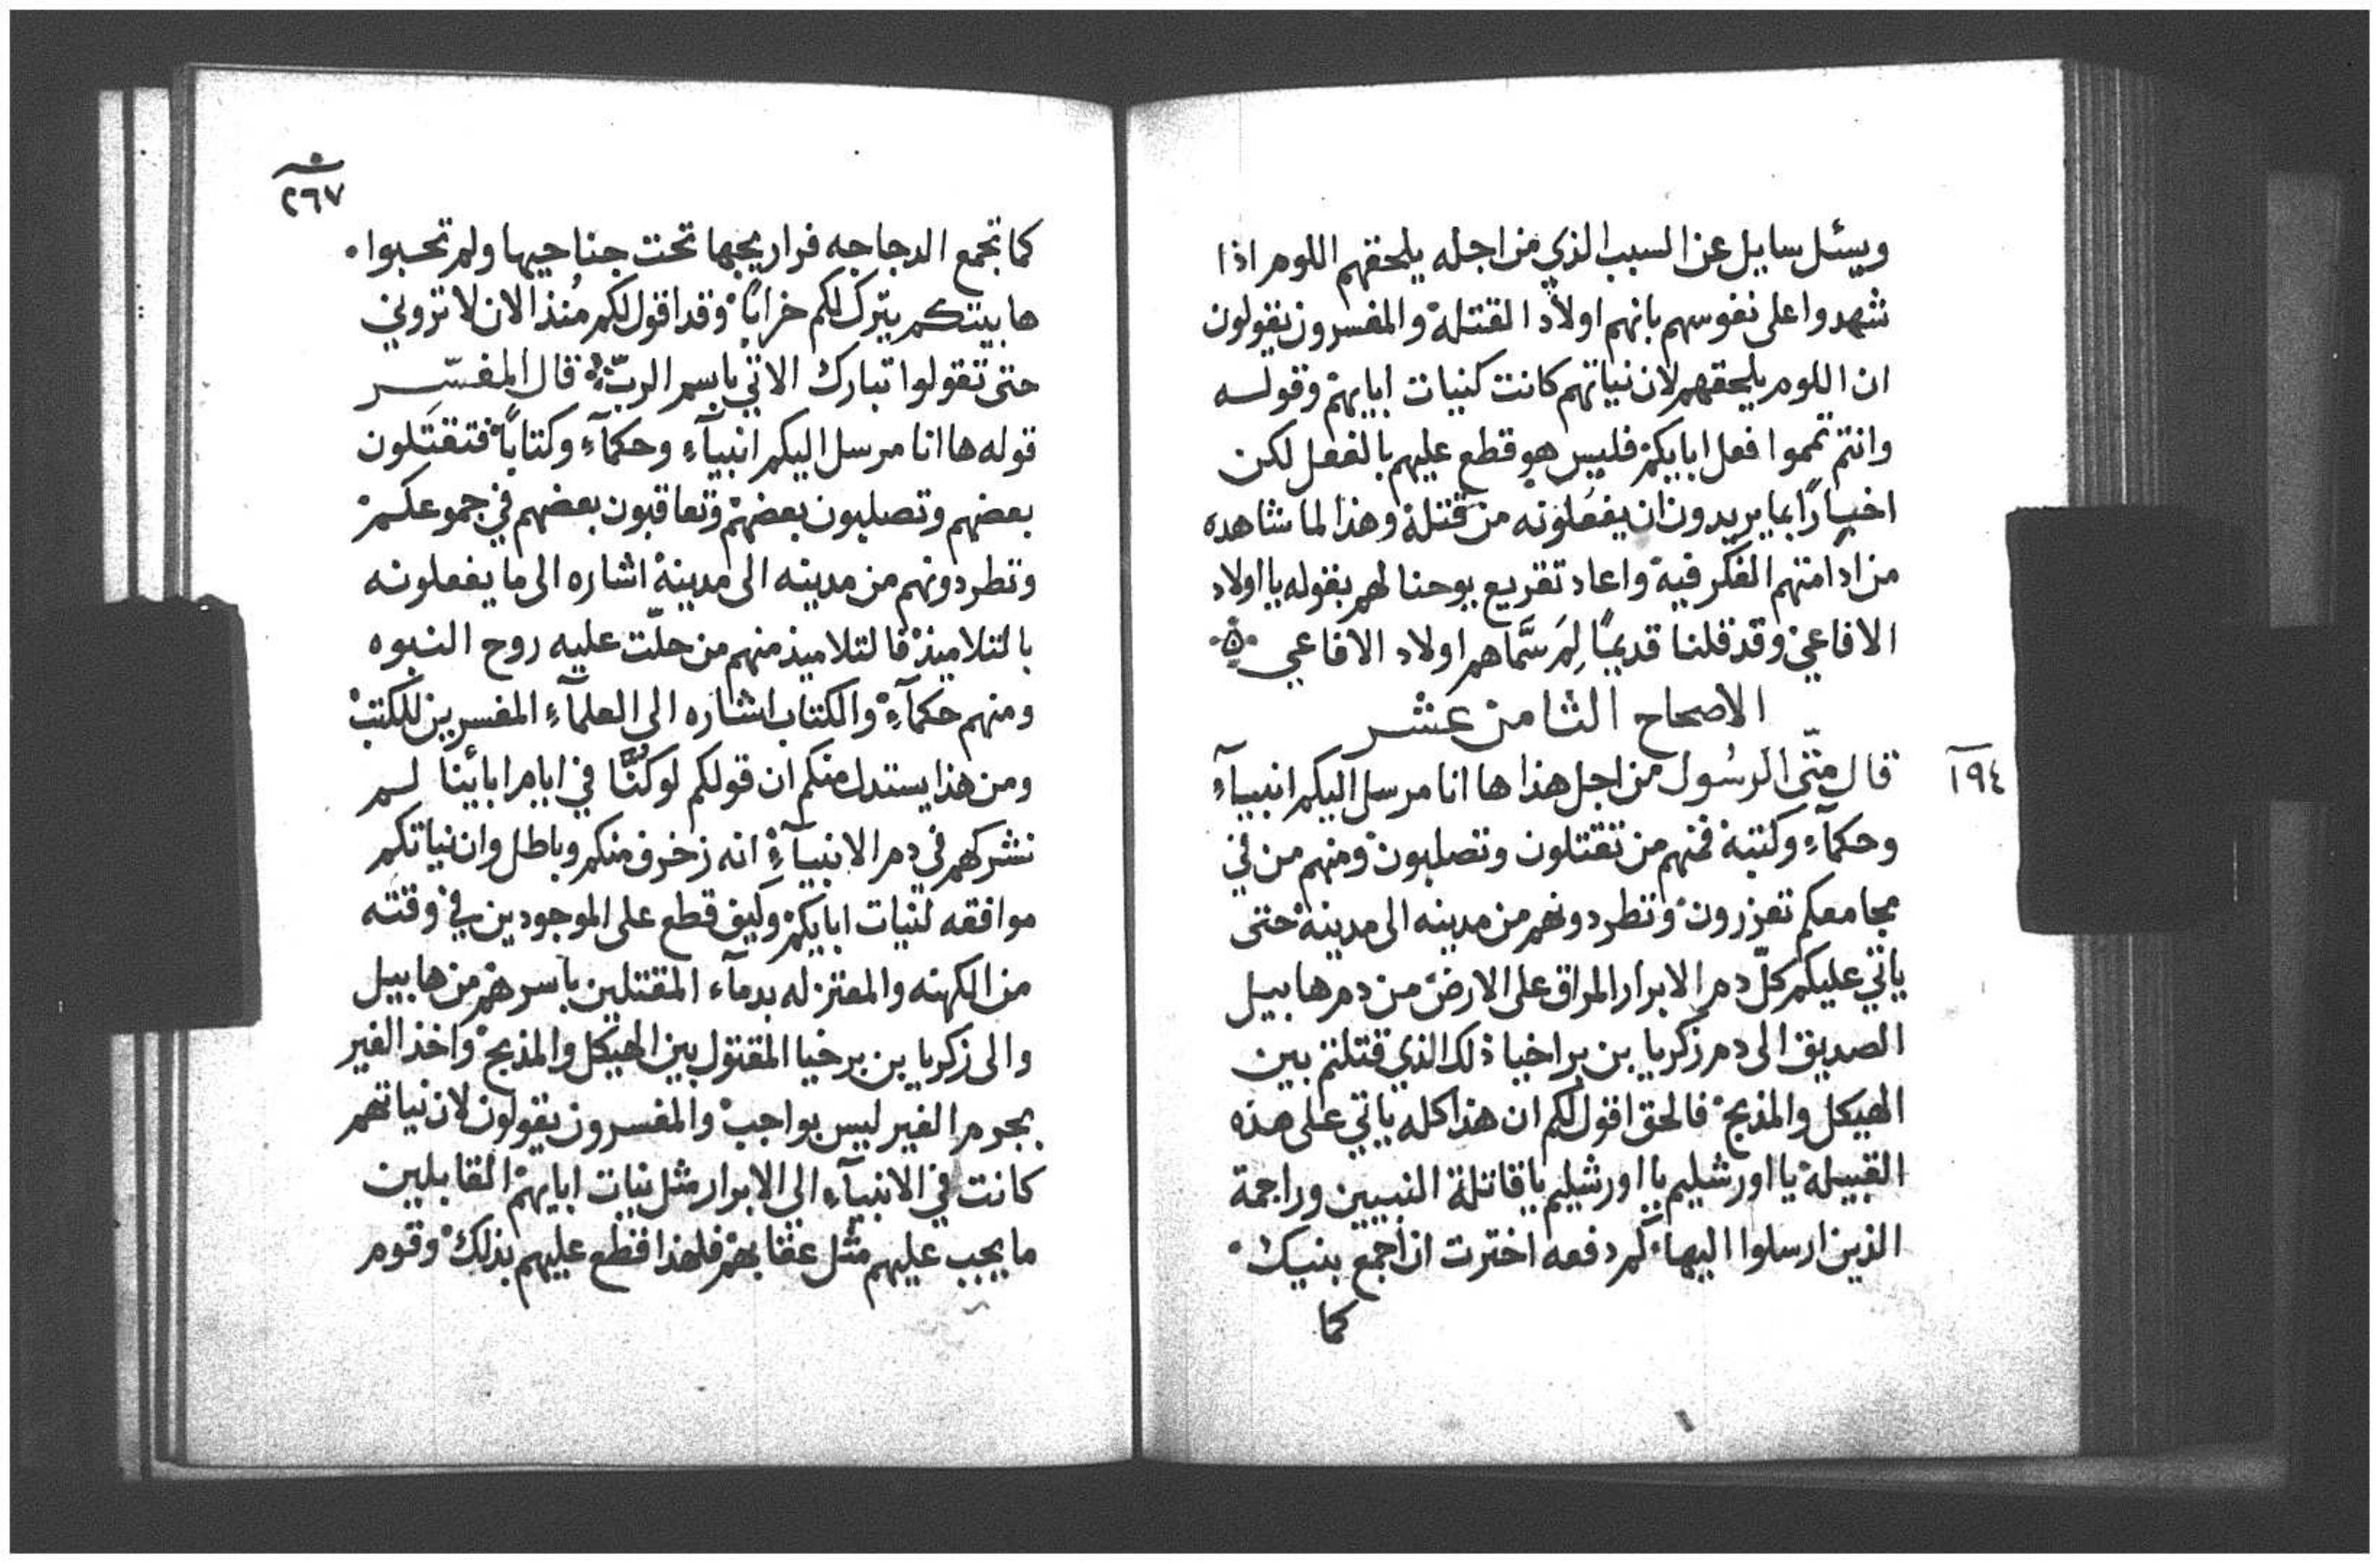 ويسئل سايل عن السبب الذي من اجله يلحقهم اللوم اذا
شهدوا على نفوسهم بانهم اولاد القتلة والمفسرون يقولون
ان اللوم يلحقهم لان نياتهم كانت كنيات ابايهم وقوله
وانتم تمموا فعل ابايكم فليس هو قطع عليهم بالفعل لكن
اخبارًا بما يريدون ان يفعلونه من قتلة وهذا لما شاهده
من ادامتهم الفكر فية واعاد تقريع يوحنا لهم بقوله يا اولاد
الافاعي وقد قلنا قديمًا لِمَ سَمَّاهم اولاد الافاعي
الاصحاح الثامن عشر
١٩٤
قال متّى الرسُول من اجل هذا ها انا مرسل اليكم انبيآءِ
وحكمآءِ وكتبة فمنهم من تقتلون وتصلبون ومنهم من في
مجامعكم تعزرون وتطردونهم من مدينه الى مدينة حتى
ياتي عليكم كلّ دم الابرار المراق على الارض من دم هابيل
الصديق الى دم زكريا بن براخيا ذلك الذي قتلتم بين
الهيكل والمذبح فالحق اقول لكم ان هذا كله ياتي على هذه
القبيلة يا اورشليم يا اورشليم يا قاتلة النبيين وراجمة
الذين ارسلوا اليها كم دفعه اخترت ان اجمع بنيك
كما
٢٦٧
كما تجمع الدجاجه فراريجها تحت جناحيها ولم تحبوا
ها بيتكم يترك لكم خرابًا وقد اقول لكم مُنذ الان لا تروني
حتى تقولوا تبارك الاتي باسم الربّ قال المفسّر
قوله ها انا مرسل اليكم انبيآءِ وحكمآءِ وكتابًا فتقتَلون
بعضهم وتصلبون بعضهم وتعاقبون بعضهم في جموعكم
وتطردونهم من مدينه الى مدينة اشاره الى ما يفعلونه
بالتلاميذ فالتلاميذ منهم من حلّت عليه روح النبوه
ومنهم حكمآءِ والكتاب اشاره الى العلمآءِ المفسرين للكتب
ومن هذا يستدل منكم ان قولكم لو كُنَّا في ايام ابائينا لم
نشركهم في دم الانبيآءِ انه زخرف منكم وباطل وان نياتكم
موافقه لنيات ابايكم وكيف قطع على الموجودين في وقته
من الكهنه والمعتزله بدمآء المقتلين باسرهم من هابيل
والى زكريا بن برخيا المقتول بين الهيكل والمذبح واخذ الغير
بجرم الغير ليس بواجب والمفسرون يقولون لان نياتهم
كانت في الانبيآء الى الابرار مثل نيات ابايهم القابلين
ما يجب عليهم مثل عقابهم فلهذا قطع عليهم بذلك وقوم